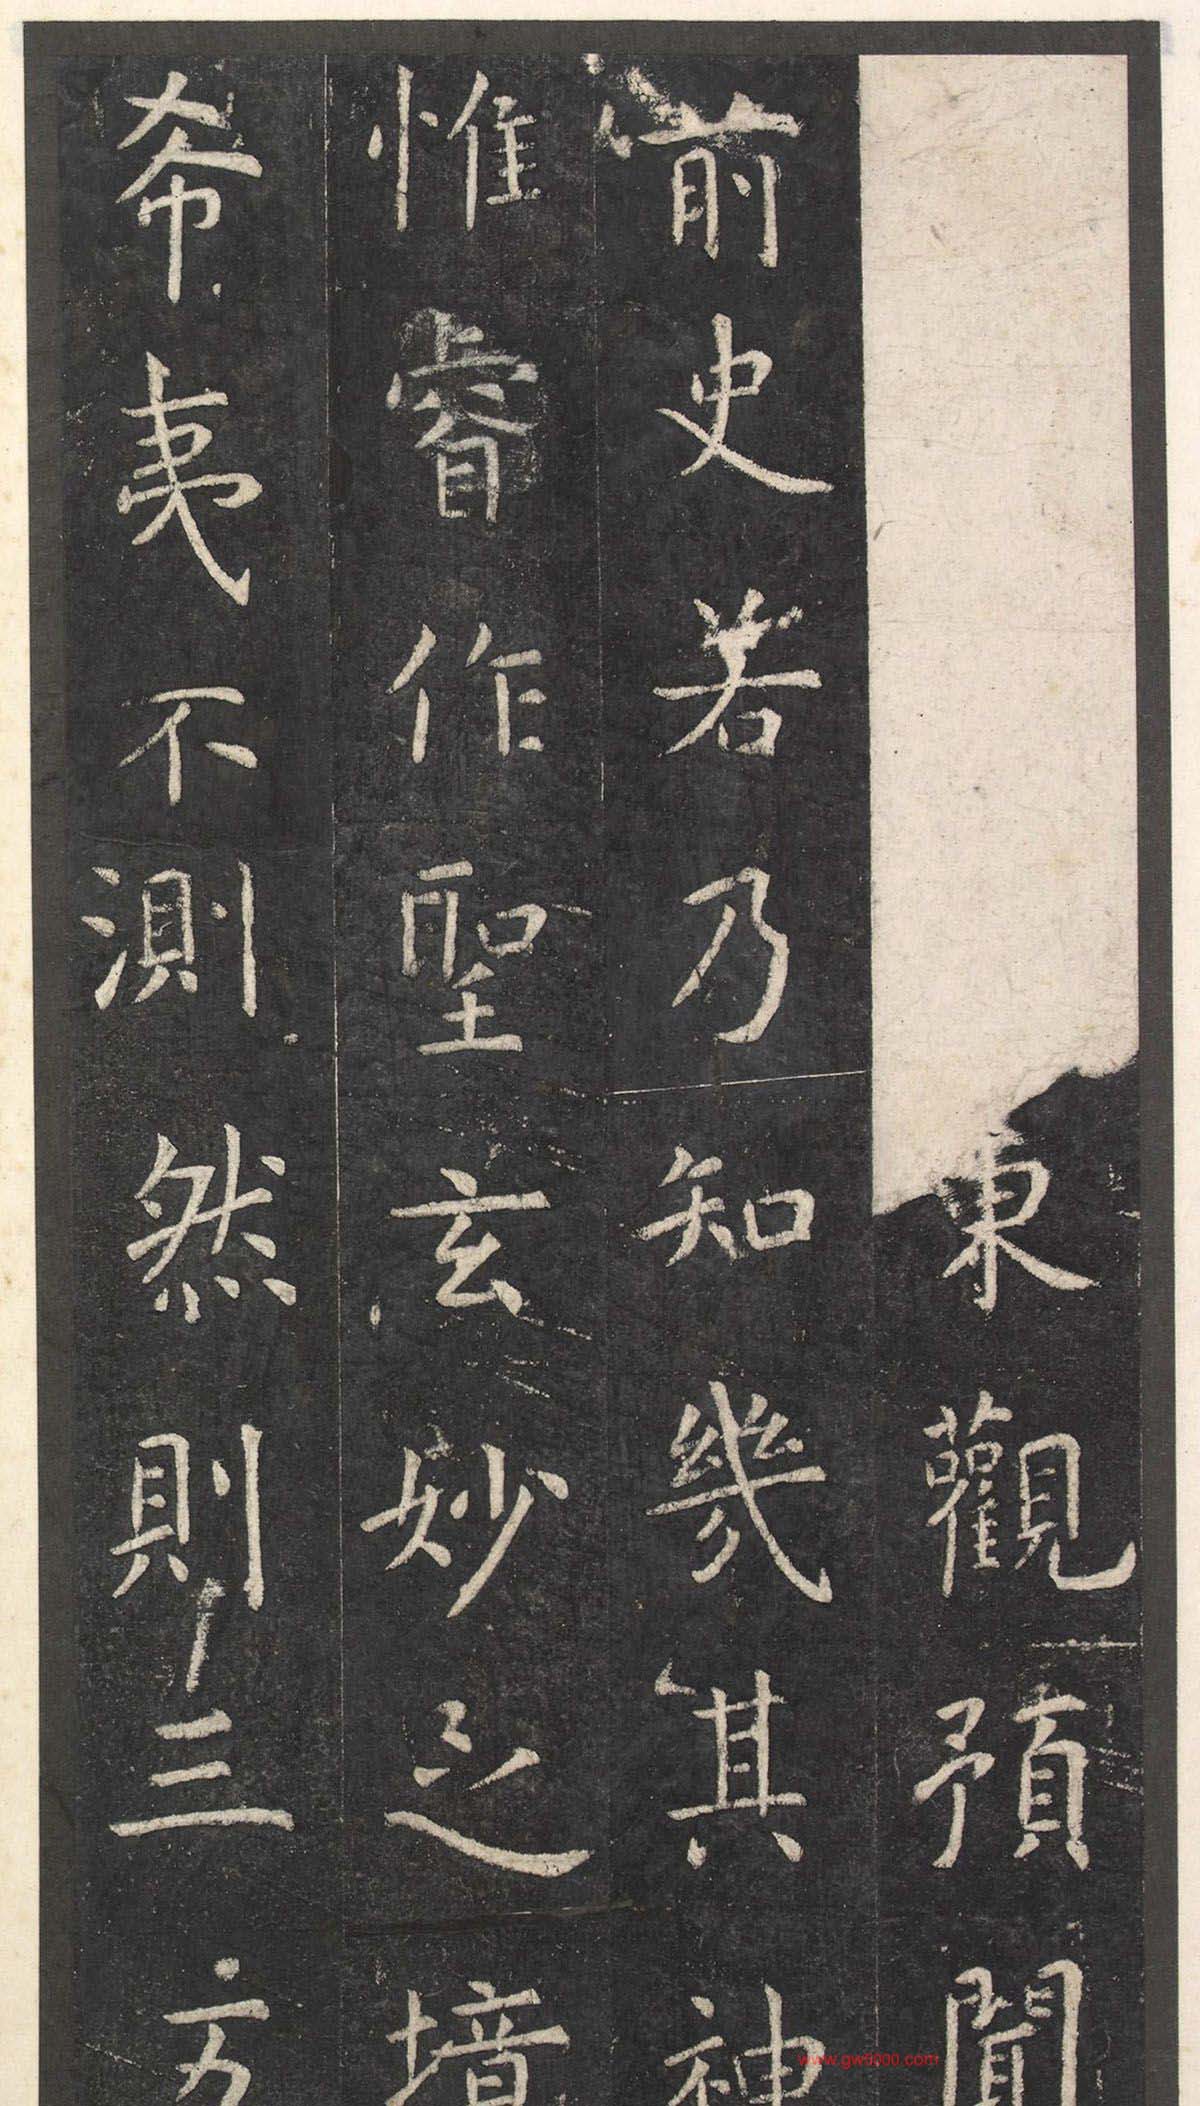 東觀預聞
前史若乃知幾其神
惟睿作聖玄妙之境
希夷不測然則三方
www.gw8000.com